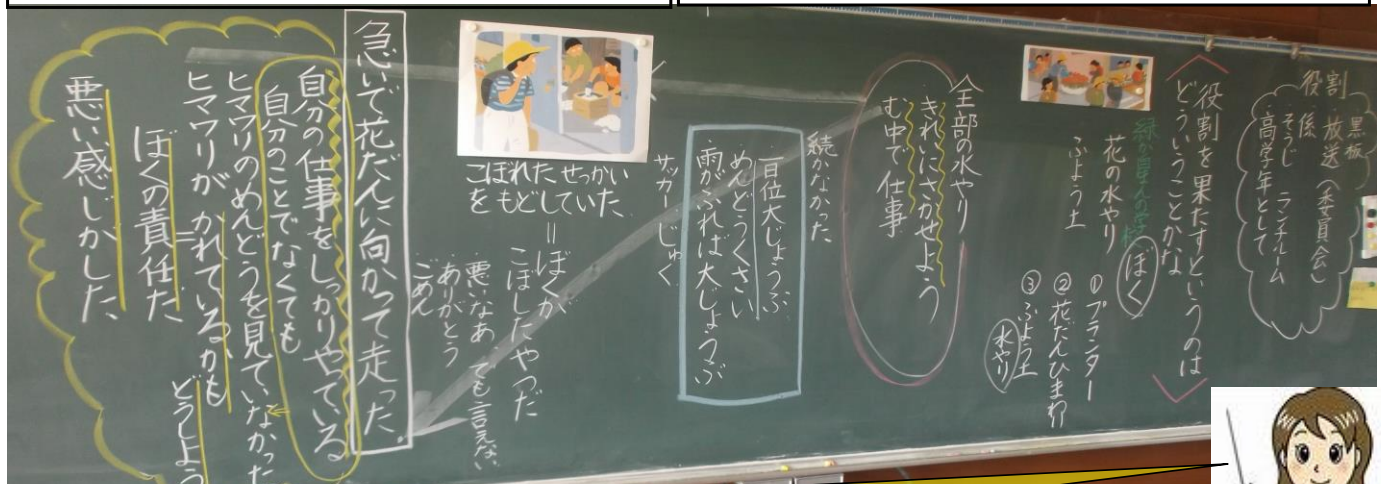 役割
黒板
放送（委員会）
係
そうじ ランチルーム
高学年として
役割を果たすというのは
どういうことかな
花の水やり
ふよう土
ぼく
①プランター
②花だんひまわり
③ふよう土
水やり
全部の水やり
きれいにさかせよう
む中で仕事
続かなかった
一日位大じょうぶ
めんどうくさい
雨がふれば大じょうぶ
サッカー じゅく
こぼれたせっかい
をもどしていた
＝ぼくが
こぼしたやつだ
悪いなあ でも言えない
ありがとう
ごめん
急いで花だんに向かって走った。
自分の仕事をしっかりやっている
自分のことでなくても
ヒマワリのめんどうを見ていなかった
ヒマワリがかれているかも
どうしよう
ぼくの責任だ
悪い感じがした